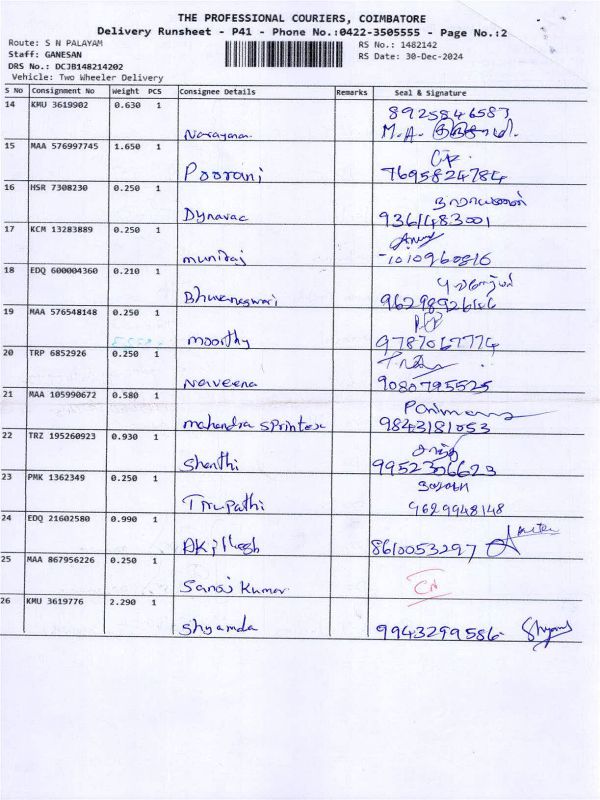 THE PROFESSIONAL COURIERS, COIMBATORE
Delivery Runsheet - P41 - Phone No.:0422-3505555 - Page No.:2
Route: S N PALAYAM RS No.: 1482142
Staff: GANESAN RS Date: 30-Dec-2024
DRS No.: DCJB148214202
Vehicle: Two Wheeler Delivery
S No Consignment No Weight PCS Consignee Details Remarks Seal & Signature
14 KMU 3619902 0.630 1 8925846583
Narayanan M.A.
15 MAA 576997745 1.650 1
Poorani 7695824784
16 HSR 7308230 0.250 1
Dynavac 9361483001
17 KCM 13283889 0.250 1
muniraj
18 EDQ 600004360 0.210 1
Bhuvaneswari
19 MAA 576548148 0.250 1
moorthy 9787067774
20 TRP 6852926 0.250 1
Naveena 9080795525
21 MAA 105990672 0.580 1
mahendra sprintex 9843181053
22 TRZ 195260923 0.930 1
Shanthi 9952306623
23 PMK 1362349 0.250 1
Tirupathi 9629948148
24 EDQ 21602580 0.990 1
Akilesh 8610053297
25 MAA 867956226 0.250 1
Sanoj Kumar
26 KMU 3619776 2.290 1
Shyamda 9943299586